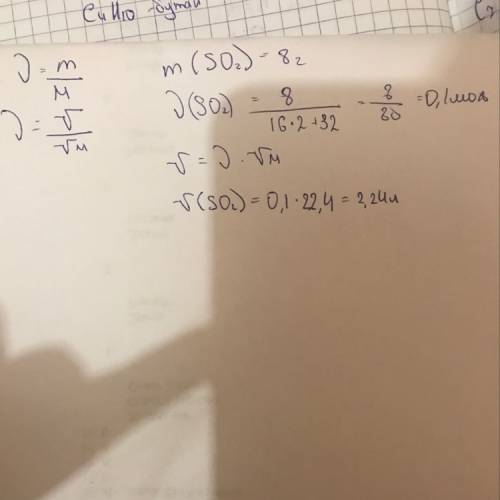 C4H10 - бутан
C2
ν = m / M
ν = V / Vм
m (SO2) = 8г
ν(SO2) = 8 / 16·2+32 = 8 / 80 = 0,1моль
V = ν · Vм
V(SO2) = 0,1·22,4 = 2,24л